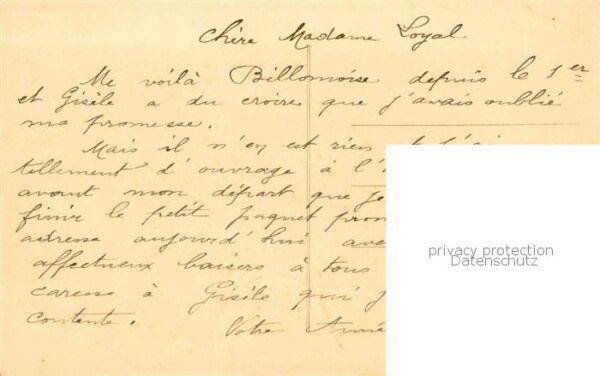 Chère Madame Loyal
Me voilà Billomoise depuis le 1er
et Gisèle a du croire que j'avais oublié
ma promesse.
Mais il n'en est rien et j'ai
tellement d'ouvrage à l'
avant mon départ que je
finir le petit paquet prom
adresse aujourd'hui ave
affectueux baisers à tous
caresse à Gisèle qui
contente.
Votre Aimé
privacy protection
Datenschutz